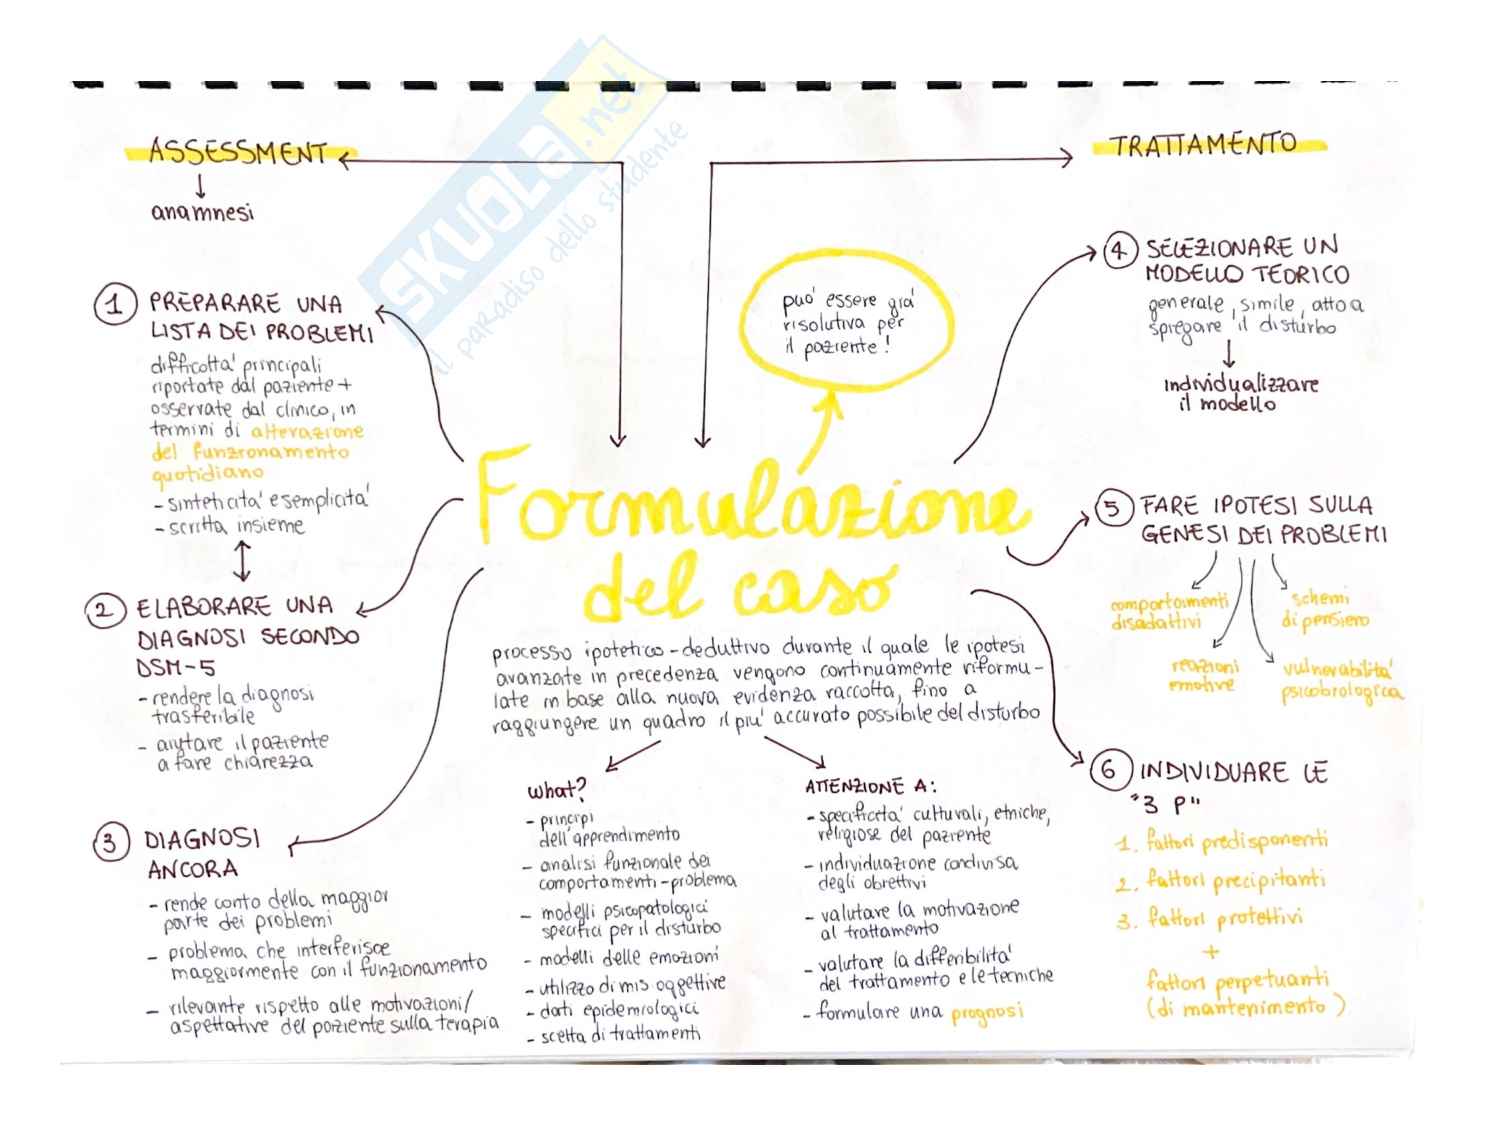 SKUOLA.net
il paradiso dello studente
ASSESSMENT
anamnesi
TRATTAMENTO
può essere già
risolutiva per
il paziente!
1 PREPARARE UNA
LISTA DEI PROBLEMI
difficoltà principali
riportate dal paziente +
osservate dal clinico, in
termini di alterazione
del funzionamento
quotidiano
- sinteticità e semplicità
- scritta insieme
2 ELABORARE UNA
DIAGNOSI SECONDO
DSM-5
- rendere la diagnosi
trasferibile
- aiutare il paziente
a fare chiarezza
3 DIAGNOSI
ANCORA
- rende conto della maggior
parte dei problemi
- problema che interferisce
maggiormente con il funzionamento
- rilevante rispetto alle motivazioni/
aspettative del paziente sulla terapia
Formulazione
del caso
processo ipotetico-deduttivo durante il quale le ipotesi
avanzate in precedenza vengono continuamente riformu-
late in base alla nuova evidenza raccolta, fino a
raggiungere un quadro il più accurato possibile del disturbo
what?
- principi
dell'apprendimento
- analisi funzionale dei
comportamenti-problema
- modelli psicopatologici
specifici per il disturbo
- modelli delle emozioni
- utilizzo di mis oggettive
- dati epidemiologici
- scelta di trattamenti
ATTENZIONE A:
- specificità culturali, etniche,
religiose del paziente
- individuazione condivisa
degli obiettivi
- valutare la motivazione
al trattamento
- valutare la differibilità
del trattamento e le tecniche
- formulare una prognosi
4 SELEZIONARE UN
MODELLO TEORICO
generale, simile, atto a
spiegare il disturbo
individualizzare
il modello
5 FARE IPOTESI SULLA
GENESI DEI PROBLEMI
comportamenti
disadattivi
schemi
di pensiero
reazioni
emotive
vulnerabilità
psicobiologica
6 INDIVIDUARE LE
"3 P"
1. fattori predisponenti
2. fattori precipitanti
3. fattori protettivi
+
fattori perpetuanti
(di mantenimento)